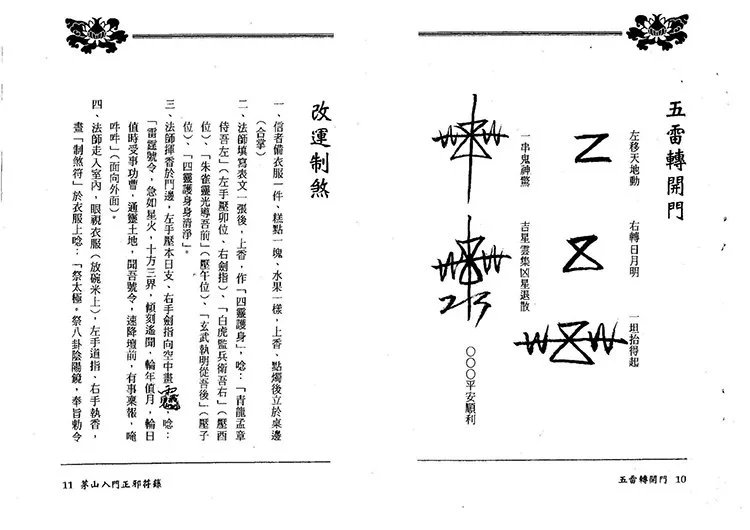 五雷轉開門
左移天地動
右轉日月明
一坦抬得起
一串鬼神驚
吉星雲集凶星退散
〇〇〇平安順利
五雷轉開門 10
改運制煞
一、信者備衣服一件、糕點一塊、水果一樣,上香、點燭後立於桌邊
(合掌)
二、法師填寫表文一張後,上香,作「四靈護身」,唸:「青龍孟章
侍吾左」(左手壓卯位、右劍指)、「白虎監兵衛吾右」(壓酉
位)、「朱雀靈光導吾前」(壓午位)、「玄武執明從吾後」(壓子
位)、「四靈護身身清淨」。
三、法師揮香於門邊,左手壓本日支、右手劍指向空中畫,唸:
「雷霆號令,急如星火,十方三界,傾刻遙聞,輪年值月,輪日
值時受事功曹,通靈土地,聞吾號令,速降壇前,有事稟報,唵
吽吽」(面向外面)。
四、法師走入室內,眼視衣服(放碗米上),左手道指、右手執香,
畫「制煞符」於衣服上唸:「祭太極。祭八卦陰陽鏡,奉旨勅令
11 茅山入門正邪符籙